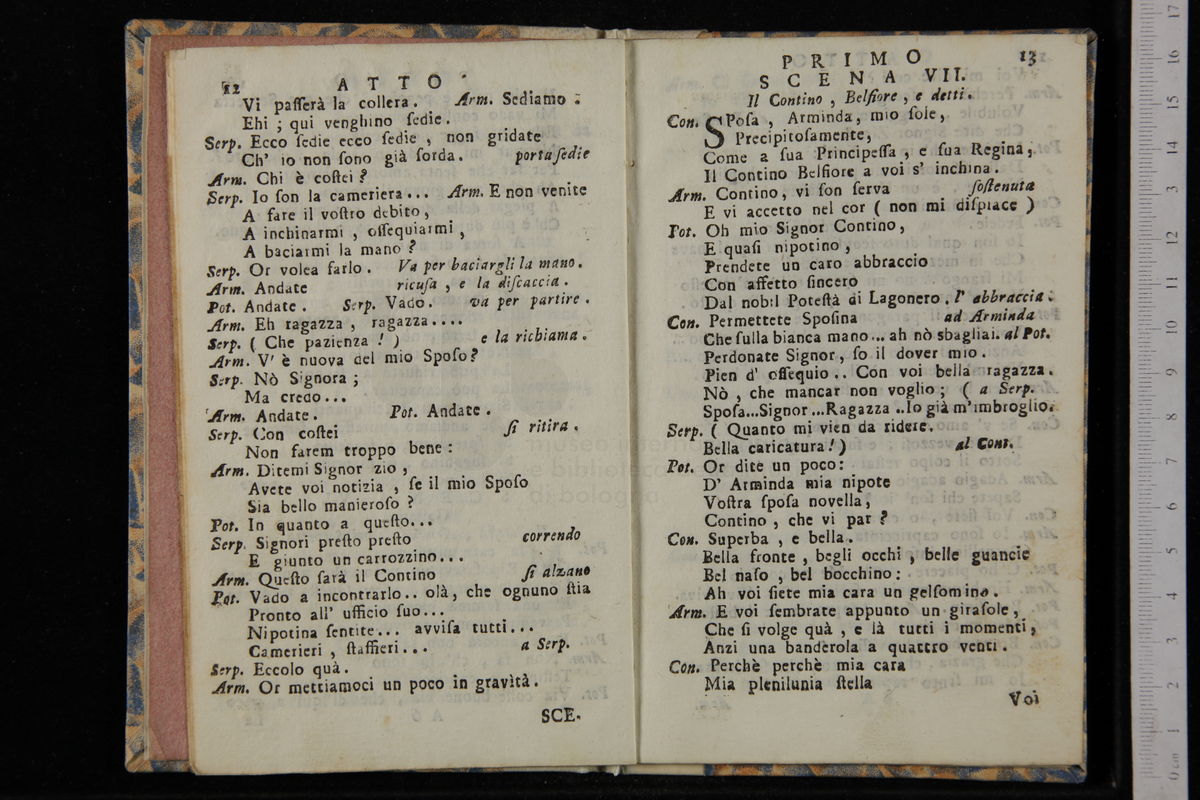 12 ATTO
Vi paſſerà la collera. Arm. Sediamo.
Ehi ; qui venghino ſedie.
Serp. Ecco ſedie ecco ſedie , non gridate
Ch' io non ſono già ſorda. porta ſedie
Arm. Chi è coſtei ?
Serp. Io ſon la cameriera... Arm. E non venite
A fare il voſtro debito,
A inchinarmi , oſſequiarmi ,
A baciarmi la mano ?
Serp. Or volea farlo. Va per baciargli la mano.
Arm. Andate ricuſa , e la diſcaccia.
Pot. Andate. Serp. Vado. va per partire.
Arm. Eh ragazza , ragazza....
Serp. ( Che pazienza ! ) e la richiama.
Arm. V' è nuova del mio Spoſo?
Serp. Nò Signora ;
Ma credo...
Arm. Andate. Pot. Andate.
Serp. Con coſtei ſi ritira.
Non farem troppo bene :
Arm. Ditemi Signor zio ,
Avete voi notizia , ſe il mio Spoſo
Sia bello manieroſo ?
Pot. In quanto a queſto...
Serp. Signori preſto preſto correndo
E giunto un carrozzino...
Arm. Queſto ſarà il Contino ſi alzano
Pot. Vado a incontrarlo.. olà, che ognuno ſtia
Pronto all' ufficio ſuo...
Nipotina ſentite... avviſa tutti...
Camerieri , ſtaffieri... a Serp.
Serp. Eccolo quà.
Arm. Or mettiamoci un poco in gravità.
SCE-
PRIMO 13
SCENA VII.
Il Contino , Belfiore , e detti.
Con. SPoſa , Arminda, mio ſole,
Precipitoſamente,
Come a ſua Principeſſa , e ſua Regina,
Il Contino Belfiore a voi s' inchina.
Arm. Contino, vi ſon ſerva ſoſtenuta
E vi accetto nel cor ( non mi diſpiace )
Pot. Oh mio Signor Contino,
E quaſi nipotino ,
Prendete un caro abbraccio
Con affetto ſincero
Dal nobil Poteſtà di Lagonero. l' abbraccia.
Con. Permettete Spoſina ad Arminda
Che ſulla bianca mano... ah nò sbagliai. al Pot.
Perdonate Signor, ſo il dover mio.
Pien d' oſſequio.. Con voi bella ragazza.
Nò , che mancar non voglio ; ( a Serp.
Spoſa...Signor...Ragazza ..Io già m'imbroglio.
Serp. ( Quanto mi vien da ridere.
Bella caricatura! ) al Cont.
Pot. Or dite un poco:
D' Arminda mia nipote
Voſtra ſpoſa novella,
Contino , che vi par ?
Con. Superba , e bella.
Bella fronte , begli occhi , belle guancie
Bel naſo , bel bocchino :
Ah voi ſiete mia cara un gelſomino.
Arm. E voi ſembrate appunto un giraſole ,
Che ſi volge quà , e là tutti i momenti,
Anzi una banderola a quattro venti.
Con. Perchè perchè mia cara
Mia plenilunia ſtella
Voi